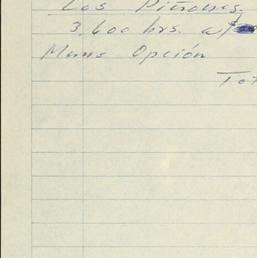 Los Piñones
3,600 hrs. a/
Menos Opción
Tot